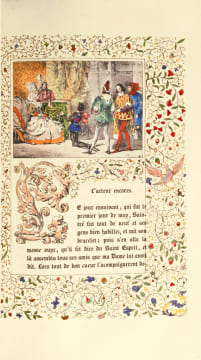 L'acteur encores.
E jour ensuivant, qui fut le
premier jour de may, Sain-
tré fut tout de neuf et ses
gens bien habillez, et mit son
bracelet; puis s'en alla la
messe ouyr, qu'il fit dire du Saint Esprit, et
là assembla tous ses amis que ma Dame lui avoit
dit. Lors tout de bon cueur l'acompaignerent de-